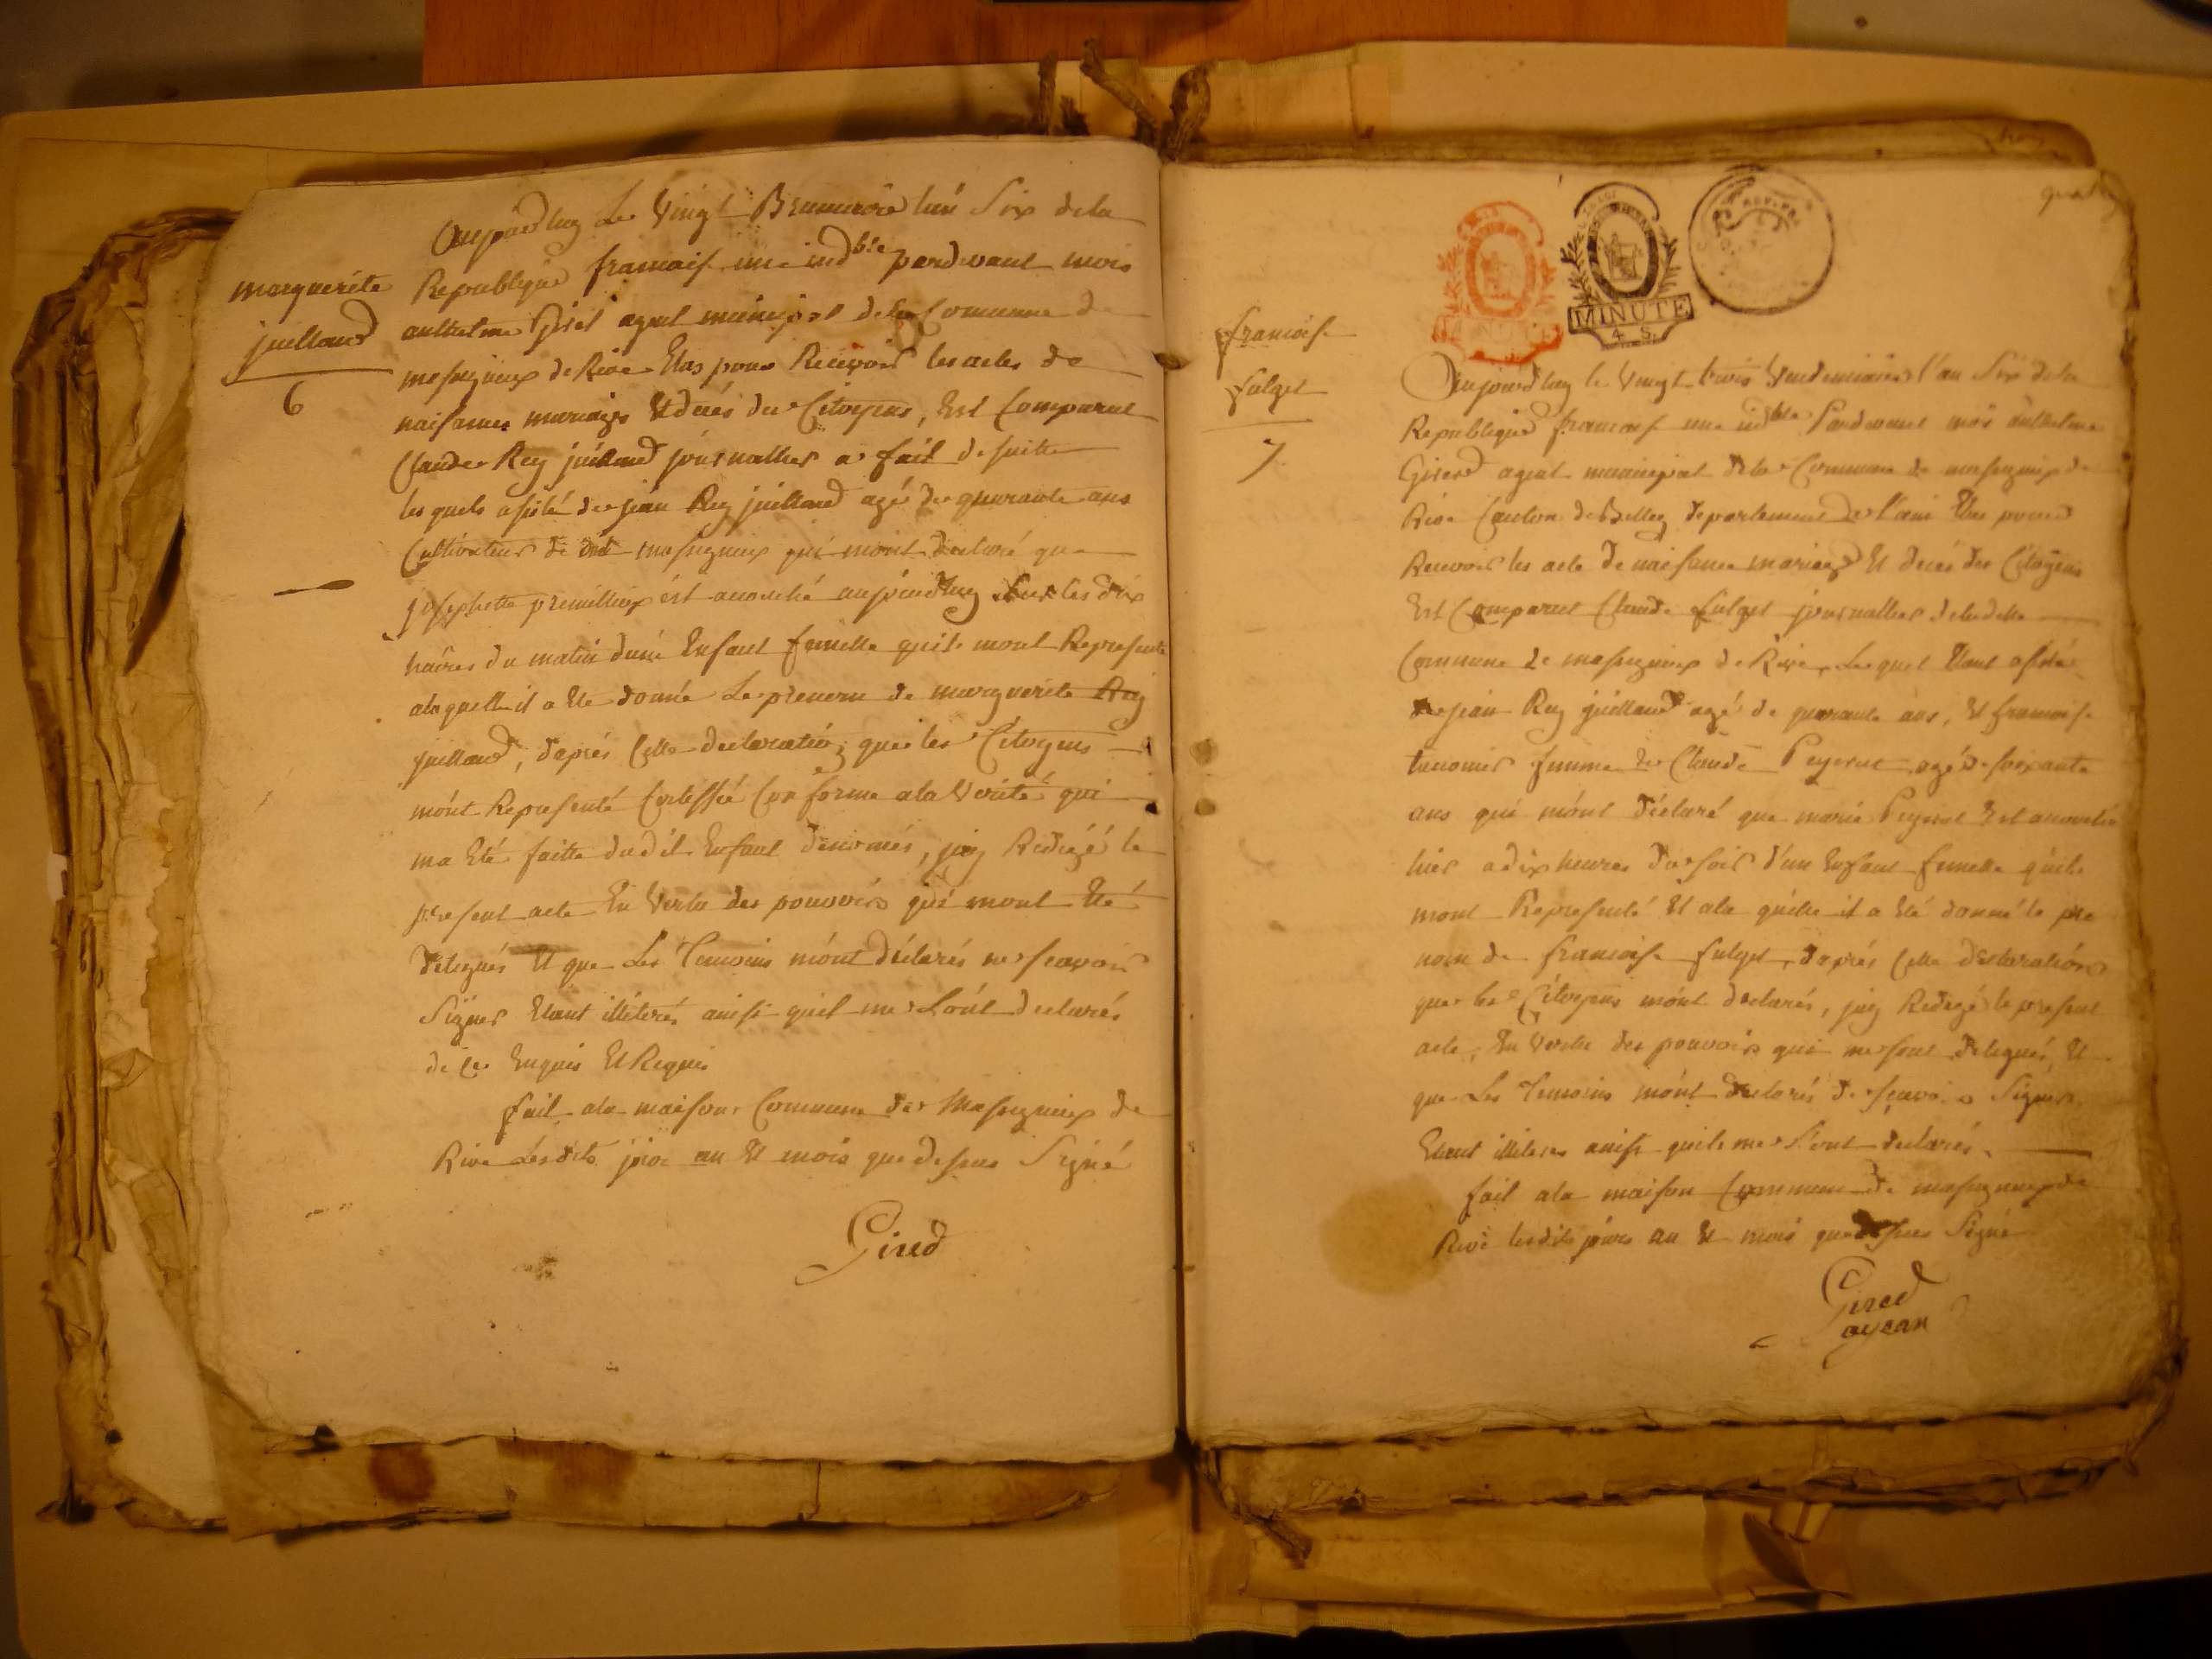 marguerite
juilland
6
Aujourdhuy Le Vingt Brumaire lan Six dela
Republique francaise une indble pardevant mois
anthelme Gired agent municipal dela Commune de
massignieux de Rive Elus pour Recevoir les actes de
naissances mariages Et decés des Citoyens, Est Comparut
Claude Rey juilland journallier a fait de suitte
les quels assisté de jean Rey juilland agé de quarante ans
Cultivateur de dit massignieux qui mont declaré que
josephette premillieux est acouché aujourdhuy sur les dix
heures du matin dune Enfant femelle quils mont Represente
ala quelle il a Ete donné Le prenom de marguerite Rey
juilland, daprés Cette declaration que les Citoyens
mont Representé Certiffié Conforme ala Verité qui
ma Eté faitte dudit Enfant denomés, jay Redigé le
present acte En Vertu des pouvoirs qui mont Eté
delegués Et que Les Temoins mont déclarés ne scavoir
Signer Etant illiterés ainsi quil me Lont declarés
de Ce Enquis Et Requis
fait ala maison Commune de Massignieux de
Rive Les dits jour an Et mois que dessus Signé
Gired
francoise
fulget
7
MINUTE
4. S.
Aujourdhuy le Vingt trois Vendemiaire l'an Six dela
Republique francaise une indble Pardevant mois anthelme
Gired agent municipal dela Commune de massignieux de
Rive Canton de Belley departement de l'ain Elus pour
Recevoir les acte de naissance mariage Et decés des Citoyens
Est Comparut Claude fulget journallier deladitte
Commune de massignieux de Rive, Lequel Etant assisté
de jean Rey juilland agé de quarante ans, Et francoise
femme de Claude Peyssut agé de soixante
ans qui mont déclaré que marie Peysset Est acouché
hier a dix heures du soir d'un Enfant femelle quils
mont Representé Et ala quelle il a Eté donné le pre
nom de francoise fulget, daprés Cette declaration
que les Citoyens mont declarés, jay Redigé le present
acte, En Vertu des pouvoirs qui me sont delegués, Et
que Les Temoins mont declarés de scavoir Signer
Etant illiteres ainsi quils me L'ont declarés.
fait ala maison Commune de massignieux de
Rive lesdits jours an Et mois que dessus Signé
Gired